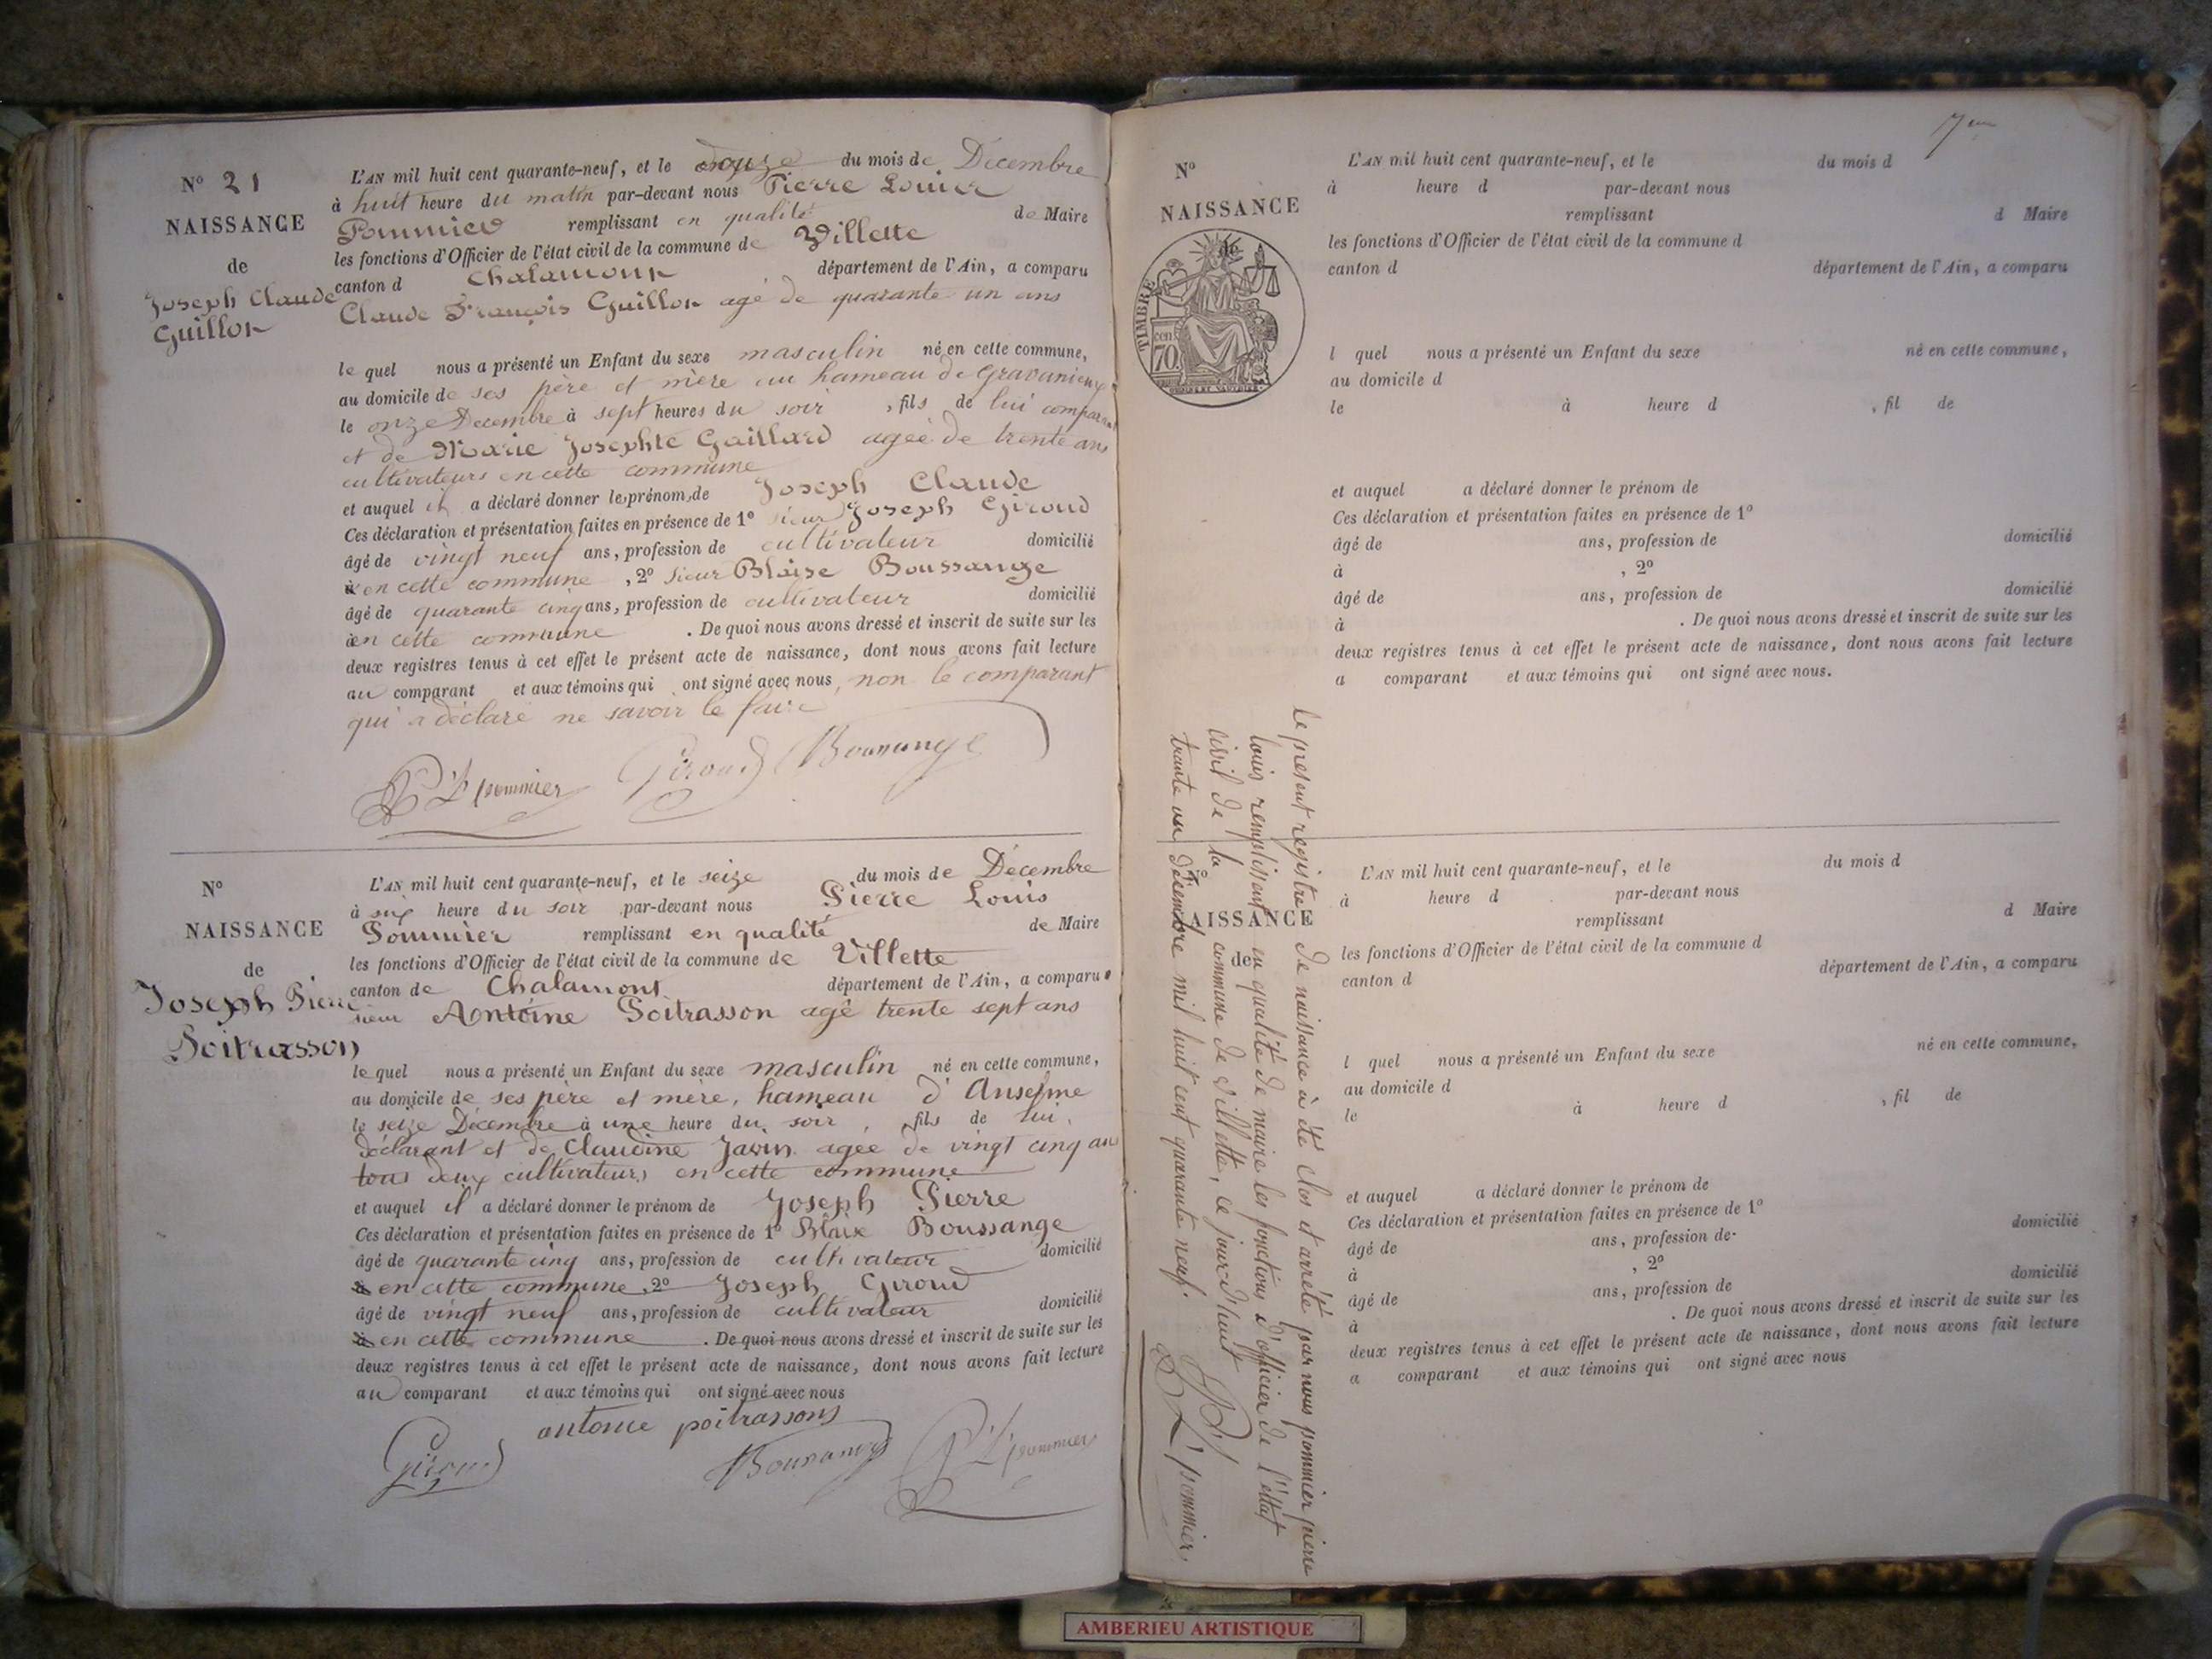 N° 21
NAISSANCE
de
Joseph Claude
Guillon
L'AN mil huit cent quarante-neuf, et le douze du mois de Décembre
à huit heure du matin par-devant nous Pierre Louis
Pommier remplissant en qualité de Maire
les fonctions d'Officier de l'état civil de la commune de Villette
canton d Chalamont département de l'Ain, a comparu
Claude François Guillon agé de quarante un ans
le quel nous a présenté un Enfant du sexe masculin né en cette commune,
au domicile de ses père et mère au hameau de
le onze Décembre à sept heures du soir , fils de lui comparant
et de Marie Josephte Gaillard agée de trente ans
cultivateurs en cette commune
et auquel il a déclaré donner le prénom de Joseph Claude
Ces déclaration et présentation faites en présence de 1° sieur Joseph Giroud
âgé de vingt neuf ans, profession de cultivateur domicilié
à en cette commune , 2° sieur Blaise Boussange
âgé de quarante cinq ans, profession de cultivateur domicilié
à en cette commune . De quoi nous avons dressé et inscrit de suite sur les
deux registres tenus à cet effet le présent acte de naissance, dont nous avons fait lecture
au comparant et aux témoins qui ont signé avec nous, non le comparant
qui a déclaré ne savoir le faire
P. L. pommier Giroud Boussange
N°
NAISSANCE
de
Joseph Pierre
Poitrasson
L'AN mil huit cent quarante-neuf, et le seize du mois de Décembre
à six heure du soir par-devant nous Pierre Louis
Pommier remplissant en qualité de Maire
les fonctions d'Officier de l'état civil de la commune de Villette
canton de Chalamont département de l'Ain, a comparu
sieur Antoine Poitrasson agé trente sept ans
le quel nous a présenté un Enfant du sexe masculin né en cette commune,
au domicile de ses père et mère, hameau d'Anselme
le seize Décembre à une heure du soir , fils de lui,
déclarant et de Claudine Javin agée de vingt cinq ans
tous deux cultivateurs en cette commune
et auquel il a déclaré donner le prénom de Joseph Pierre
Ces déclaration et présentation faites en présence de 1° Blaise Boussange
âgé de quarante cinq ans, profession de cultivateur domicilié
à en cette commune, 2° Joseph Giroud
âgé de vingt neuf ans, profession de cultivateur domicilié
à en cette commune . De quoi nous avons dressé et inscrit de suite sur les
deux registres tenus à cet effet le présent acte de naissance, dont nous avons fait lecture
au comparant et aux témoins qui ont signé avec nous
antoine poitrassons
Giroud Boussange P. L. pommier
7me
N°
NAISSANCE
de
TIMBRE
cen.
70
L'AN mil huit cent quarante-neuf, et le du mois d
à heure d par-devant nous
remplissant d Maire
les fonctions d'Officier de l'état civil de la commune d
canton d département de l'Ain, a comparu
l quel nous a présenté un Enfant du sexe né en cette commune,
au domicile d
le à heure d , fil de
et auquel a déclaré donner le prénom de
Ces déclaration et présentation faites en présence de 1°
âgé de ans, profession de domicilié
à , 2°
âgé de ans, profession de domicilié
à . De quoi nous avons dressé et inscrit de suite sur les
deux registres tenus à cet effet le présent acte de naissance, dont nous avons fait lecture
a comparant et aux témoins qui ont signé avec nous.
Le present registre de naissance à été Clos et arrêté par nous pommier pierre
louis remplissent en qualité de maire les fonctions d'officier de l'éttat
civil de la commune de Villette, ce jourd'huit
trante un Décembre mil huit cent quarante neuf.
P. L. pommier
N°
NAISSANCE
de
L'AN mil huit cent quarante-neuf, et le du mois d
à heure d par-devant nous
remplissant d Maire
les fonctions d'Officier de l'état civil de la commune d
canton d département de l'Ain, a comparu
l quel nous a présenté un Enfant du sexe né en cette commune,
au domicile d
le à heure d , fil de
et auquel a déclaré donner le prénom de
Ces déclaration et présentation faites en présence de 1°
âgé de ans, profession de domicilié
à , 2°
âgé de ans, profession de domicilié
à . De quoi nous avons dressé et inscrit de suite sur les
deux registres tenus à cet effet le présent acte de naissance, dont nous avons fait lecture
a comparant et aux témoins qui ont signé avec nous
AMBERIEU ARTISTIQUE